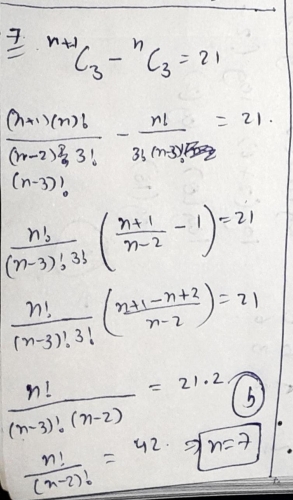 7. n+1C3 - nC3 = 21
(n+1)(n)! / (n-2) 3! (n-3)! - n! / 3! (n-3)! = 21.
n! / (n-3)! 3! ( n+1 / n-2 - 1 ) = 21
n! / (n-3)! 3! ( n+1-n+2 / n-2 ) = 21
n! / (n-3)! (n-2) = 21.2 b
n! / (n-2)! = 42. ⇒ n=7